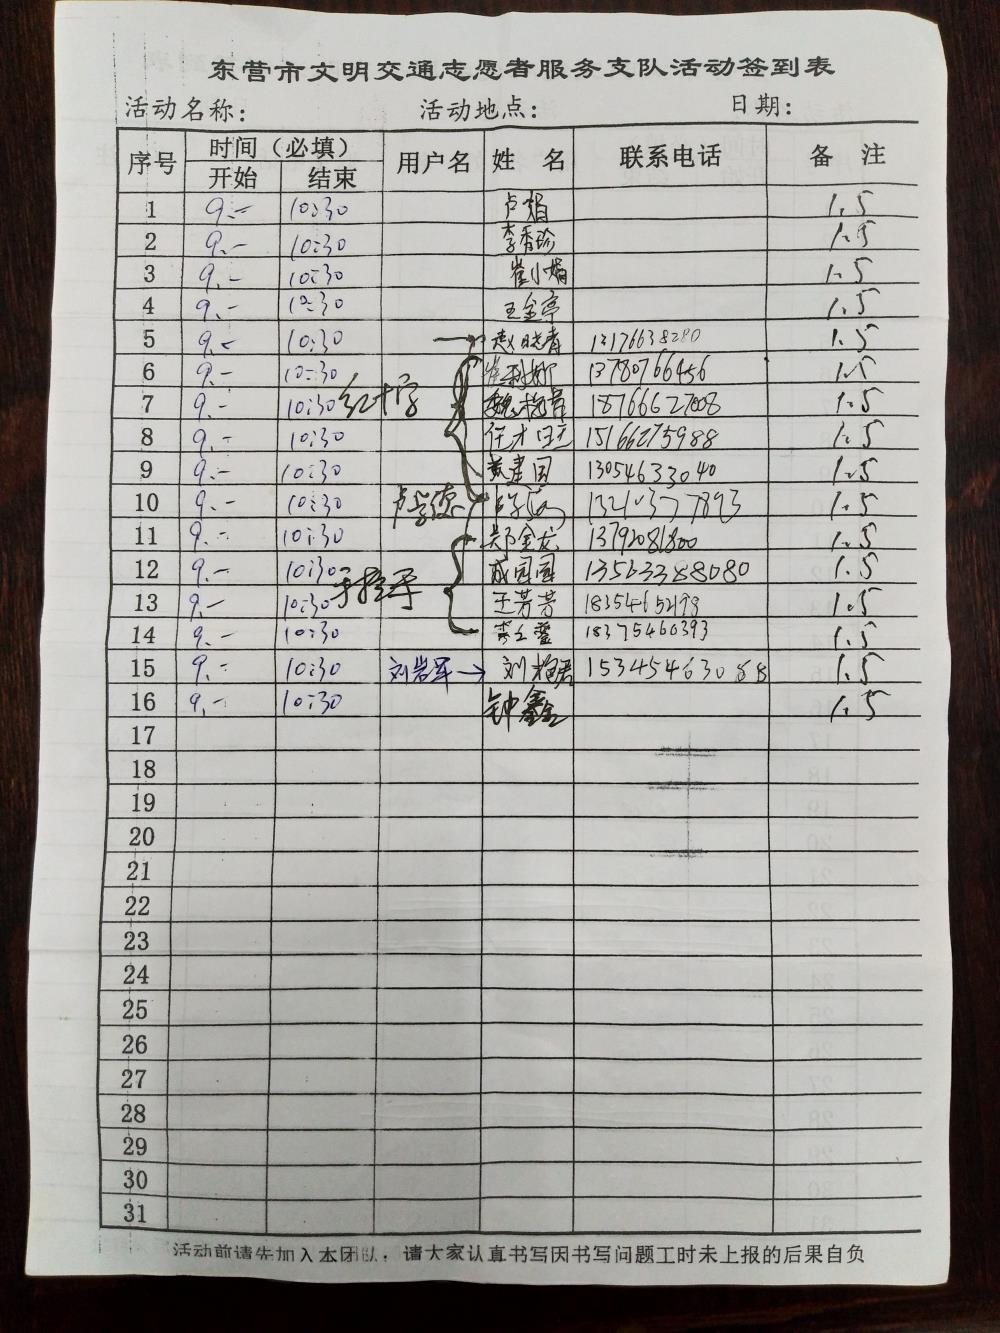 东营市文明交通志愿者服务支队活动签到表
活动名称: 活动地点: 日期:
序号 时间（必填） 用户名 姓 名 联系电话 备 注
开始 结束
1 9.- 10:30 卢娟 1.5
2 9.- 10:30 李香珍 1.5
3 9.- 10:30 崔小娟 1.5
4 9.- 10:30 王金亭 1.5
5 9.- 10:30 赵晓青 13176638280 1.5
6 9.- 10:30 13780766456 1.5
7 9.- 10:30 红十字 18766627008 1.5
8 9.- 10:30 任才旺 15166275988 1.5
9 9.- 10:30 黄建国 13054633040 1.5
10 9.- 10:30 1.5
11 9.- 10:30 郑金龙 13792081800 1.5
12 9.- 10:30 成园园 13563388080 1.5
13 9.- 10:30 王芳芳 18354652198 1.5
14 9.- 10:30 18375460393 1.5
15 9.- 10:30 刘岩军→ 刘 153454630 1.5
16 9.- 10:30 钟鑫 1.5
17
18
19
20
21
22
23
24
25
26
27
28
29
30
31
活动前请先加入本团队，请大家认真书写因书写问题工时未上报的后果自负